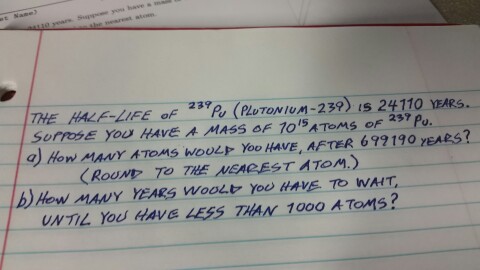 24110 years. Suppose you have a mass
the nearest atom.
THE HALF-LIFE OF ²³⁹Pu (PLUTONIUM-239) IS 24110 YEARS.
SUPPOSE YOU HAVE A MASS OF 10¹⁵ ATOMS OF ²³⁹Pu.
a) HOW MANY ATOMS WOULD YOU HAVE, AFTER 699190 YEARS?
(ROUND TO THE NEAREST ATOM.)
b) HOW MANY YEARS WOULD YOU HAVE TO WAIT,
UNTIL YOU HAVE LESS THAN 1000 ATOMS?